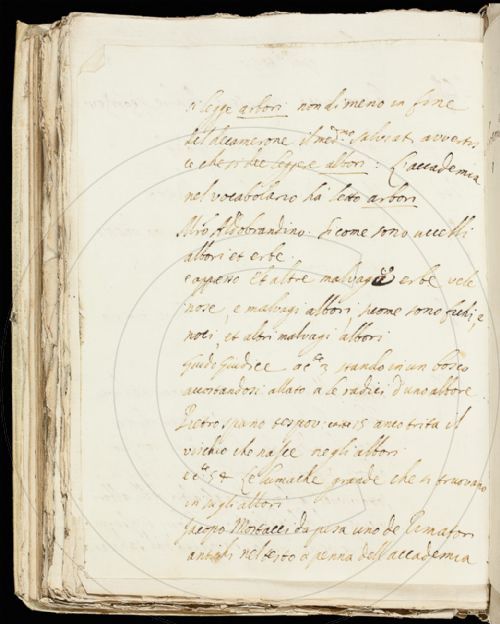 si legge arbori nondimeno in fine
del decamerone il med.mo salviati avverti
ce che si dee leggere albori. L'accademia
nel vocabolario ha letto arbori
M.ro Aldobrandino. Si come sono uccelli
albori et erbe.
e appresso Et altre malvagie erbe vele
nose e malvagi albori, sicome sono fichi, e
noci, et altri malvagi albori
Guido Giudice 3 stando in un bosco
accostandosi allato a le radici d'uno albore
Pietro spano tespov: 15 anco trita il
vischio che nasce negli albori.
54 Le lumache grande che si truovano
in su gli albori
Jacopo Mostacci da pisa uno de Rimatori
antichi nel testo a penna dell'accademia